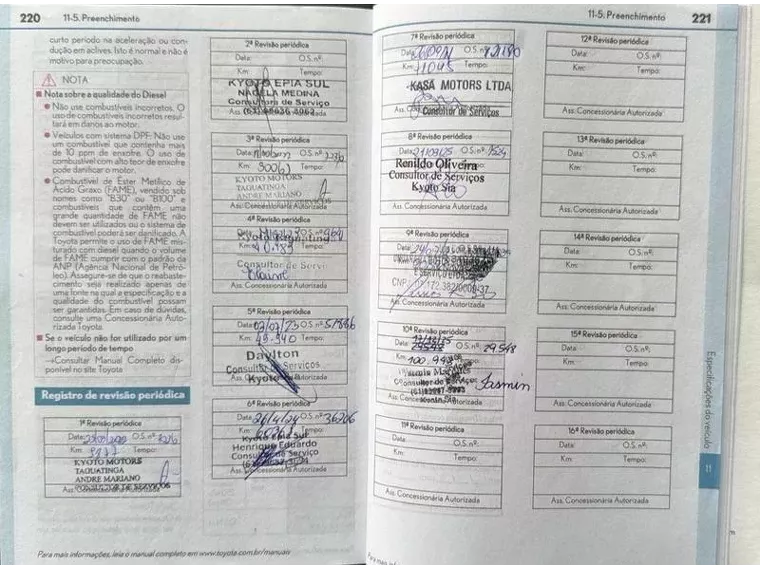 220
11-5. Preenchimento
curto período na aceleração ou con-
dução em aclives. Isto é normal e não é
motivo para preocupação.
NOTA
Nota sobre a qualidade do Diesel
Não use combustíveis incorretos. O
uso de combustíveis incorretos resul-
tará em danos ao motor.
Veículos com sistema DPF: Não use
um combustível que contenha mais
de 10 ppm de enxofre. O uso de
combustível com alto teor de enxofre
pode danificar o motor.
Combustível de Éster Metílico de
Ácido Graxo (FAME), vendido sob
nomes como "B30" ou "B100" e
combustíveis que contêm uma
grande quantidade de FAME não
devem ser utilizados ou o sistema de
combustível poderá ser danificado. A
Toyota permite o uso de FAME mis-
turado com diesel quando o volume
de FAME cumprir com o padrão da
ANP (Agência Nacional de Petró-
leo). Assegure-se de que o reabaste-
cimento seja realizado apenas de
uma fonte na qual a especificação e a
qualidade do combustível possam
ser garantidas. Em caso de dúvidas,
consulte uma Concessionária Auto-
rizada Toyota.
Se o veículo não for utilizado por um
longo período de tempo
→Consultar Manual Completo dis-
ponível no site Toyota
Registro de revisão periódica
1ª Revisão periódica
Data: O.S. nº:
Km: Tempo:
KYOTO MOTORS
TAGUATINGA
ANDRE MARIANO
CONSULTOR DE SERVIÇOS
2ª Revisão periódica
Data: O.S. nº:
Km: Tempo:
KYOTO EPIA SUL
NAGELA MEDINA
Consultora de Serviço
3ª Revisão periódica
Data: O.S. nº:
Km: Tempo:
KYOTO MOTORS
TAGUATINGA
ANDRE MARIANO
Ass. Concessionária Autorizada
4ª Revisão periódica
Data: O.S. nº:
Km:
Consultor de Servi
Ass. Concessionária Autorizada
5ª Revisão periódica
Data: 02/02/23 O.S. nº: 51886
Km: 49.940 Tempo:
Daylton
Consultor de Serviços
Kyoto
6ª Revisão periódica
Data: O.S. nº: 36206
Km: Tempo:
Kyoto Epia Sul
Henrique Eduardo
Consultor de Serviço
Ass. Concessionária Autorizada
Para mais informações, leia o manual completo em www.toyota.com.br/manuais
11-5. Preenchimento
221
7ª Revisão periódica
Data: O.S. nº: 121180
Km: Tempo:
KASA MOTORS LTDA
Ass. Consultor de Serviços
8ª Revisão periódica
Data: O.S. nº: 7524
Km: Tempo:
Renildo Oliveira
Consultor de Serviços
Kyoto Sia
Ass. Concessionária Autorizada
9ª Revisão periódica
Data: O.S. nº:
Ass. Concessionária Autorizada
10ª Revisão periódica
Data: O.S. nº: 29.548
Km: Tempo:
Consultor de Serviços
Jasmin
Ass. Concessionária Autorizada
11ª Revisão periódica
Data: O.S. nº:
Km: Tempo:
Ass. Concessionária Autorizada
12ª Revisão periódica
Data: O.S. nº:
Km: Tempo:
Ass. Concessionária Autorizada
13ª Revisão periódica
Data: O.S. nº:
Km: Tempo:
Ass. Concessionária Autorizada
14ª Revisão periódica
Data: O.S. nº:
Km: Tempo:
Ass. Concessionária Autorizada
15ª Revisão periódica
Data: O.S. nº:
Km: Tempo:
Ass. Concessionária Autorizada
16ª Revisão periódica
Data: O.S. nº:
Km: Tempo:
Ass. Concessionária Autorizada
Especificações do veículo
11